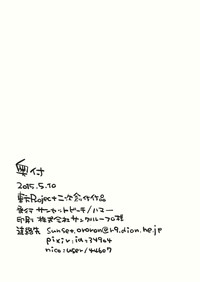 奥付
2015.5.10
東方Project二次創作作品
発行 サンセットビーチ/ハスー
印刷 株式会社サングループ様
連絡先 sunset.ororon@r9.dion.ne.jp
pixiv:id=34904
nico:user/44607